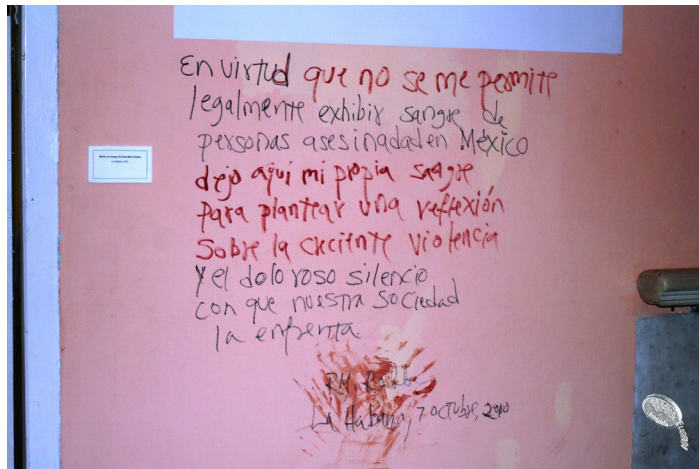 En virtud que no se me permite
legalmente exhibir sangre de
personas asesinadad en México
dejo aquí mi propia sangre
para plantear una reflexión
sobre la creciente violencia
y el doloroso silencio
con que nuestra sociedad
la enfrenta.
RM.
La Habana, 7 octubre, 2010